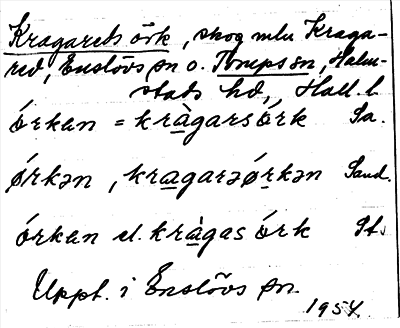 Kragareds örk, skog mlu Kraga-
red, Enslövs sn o. Tönnersjö sn, Halm-
stads hd, Hall. l.
órkan = kràgarsórk Sa.
órkən, kragarəórkən Sand.
órkan el. kràgas órk St.
Uppt. i Enslövs sn.
1954.